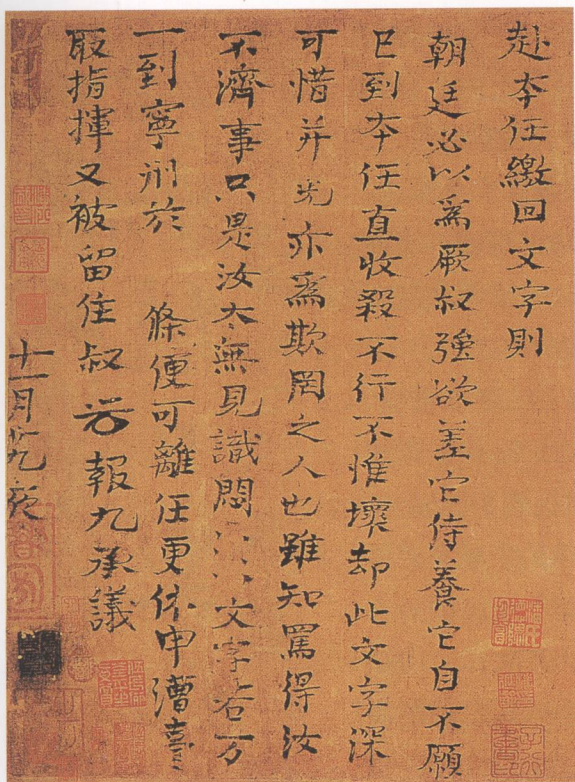 赴本任繳回文字則
朝廷必以為厥叔強欲差它侍養它自不願
已到本任直收殺不行不惟壞却此文字深
可惜并光亦為欺罔之人也雖知罵得汝
不濟事只是汝太無見識悶文字若万
一到寧州於 條便可離任更休申漕臺
取指揮又被留住叔 報九承議
十一月廿九夜